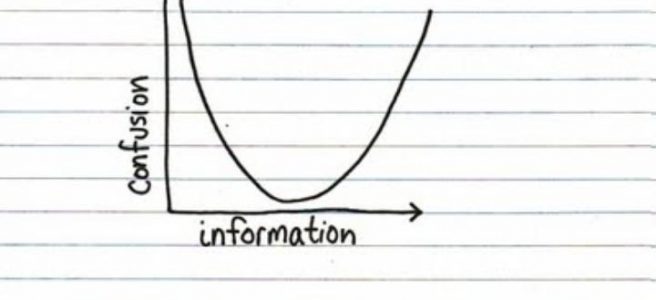 Confusion
information